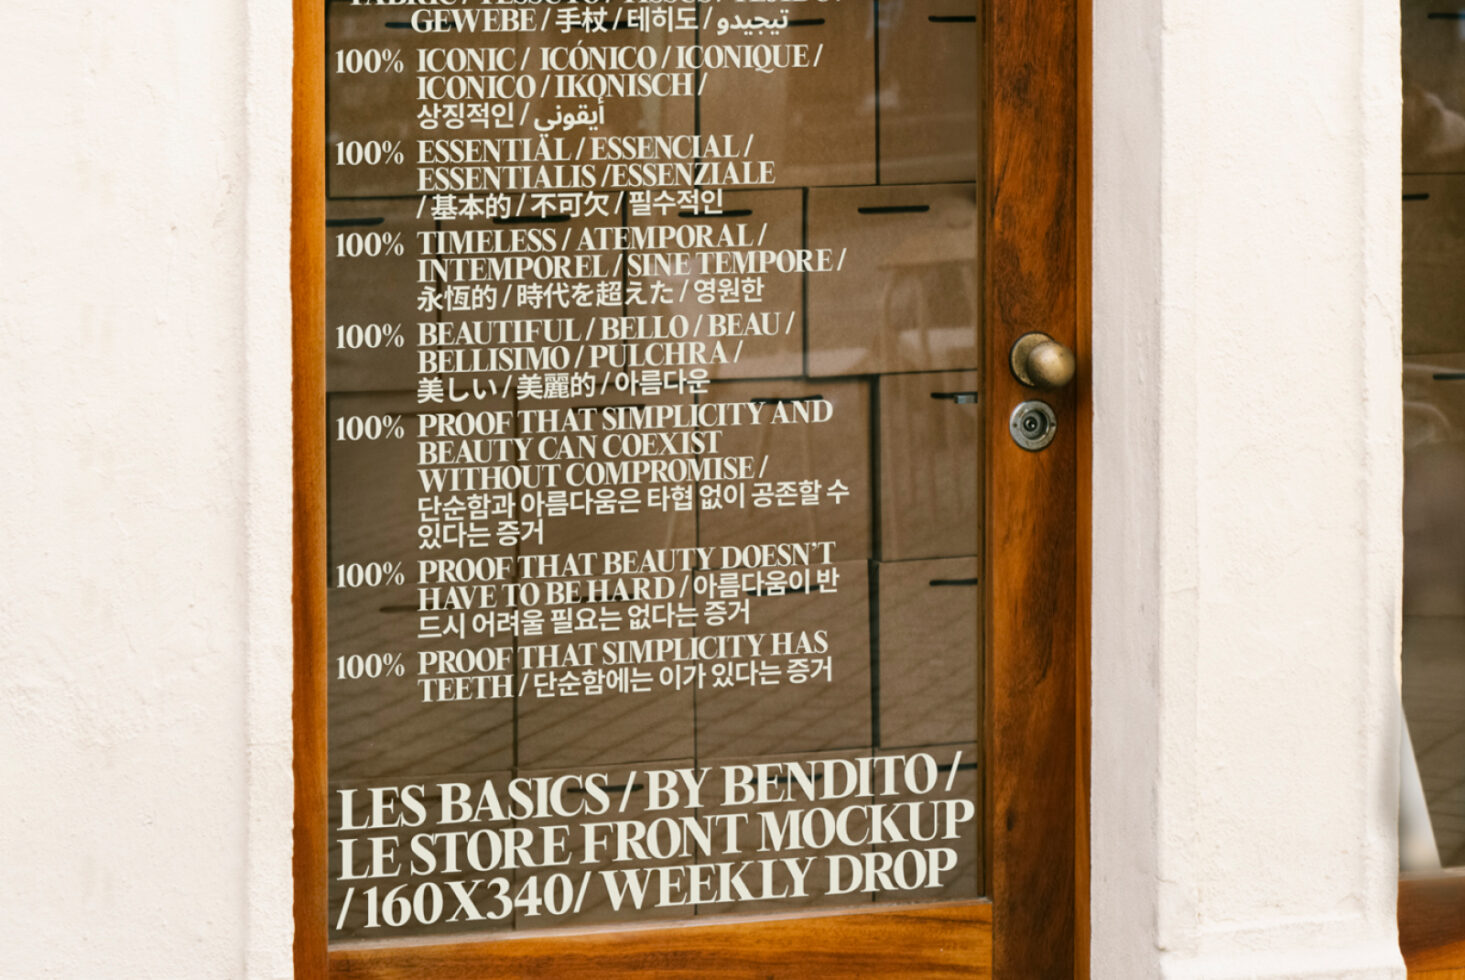 FABRIC / TESSUTO / TISSUS / TEJIDO /
GEWEBE / 手杖 / 테히도 / تيجيدو
100% ICONIC / ICÓNICO / ICONIQUE /
ICONICO / IKONISCH /
상징적인 / أيقوني
100% ESSENTIAL / ESSENCIAL /
ESSENTIALIS /ESSENZIALE
/ 基本的 / 不可欠 / 필수적인
100% TIMELESS / ATEMPORAL /
INTEMPOREL / SINE TEMPORE /
永恆的 / 時代を超えた / 영원한
100% BEAUTIFUL / BELLO / BEAU /
BELLISIMO / PULCHRA /
美しい / 美麗的 / 아름다운
100% PROOF THAT SIMPLICITY AND
BEAUTY CAN COEXIST
WITHOUT COMPROMISE /
단순함과 아름다움은 타협 없이 공존할 수
있다는 증거
100% PROOF THAT BEAUTY DOESN'T
HAVE TO BE HARD / 아름다움이 반
드시 어려울 필요는 없다는 증거
100% PROOF THAT SIMPLICITY HAS
TEETH / 단순함에는 이가 있다는 증거
LES BASICS / BY BENDITO /
LE STORE FRONT MOCKUP
/ 160X340/ WEEKLY DROP